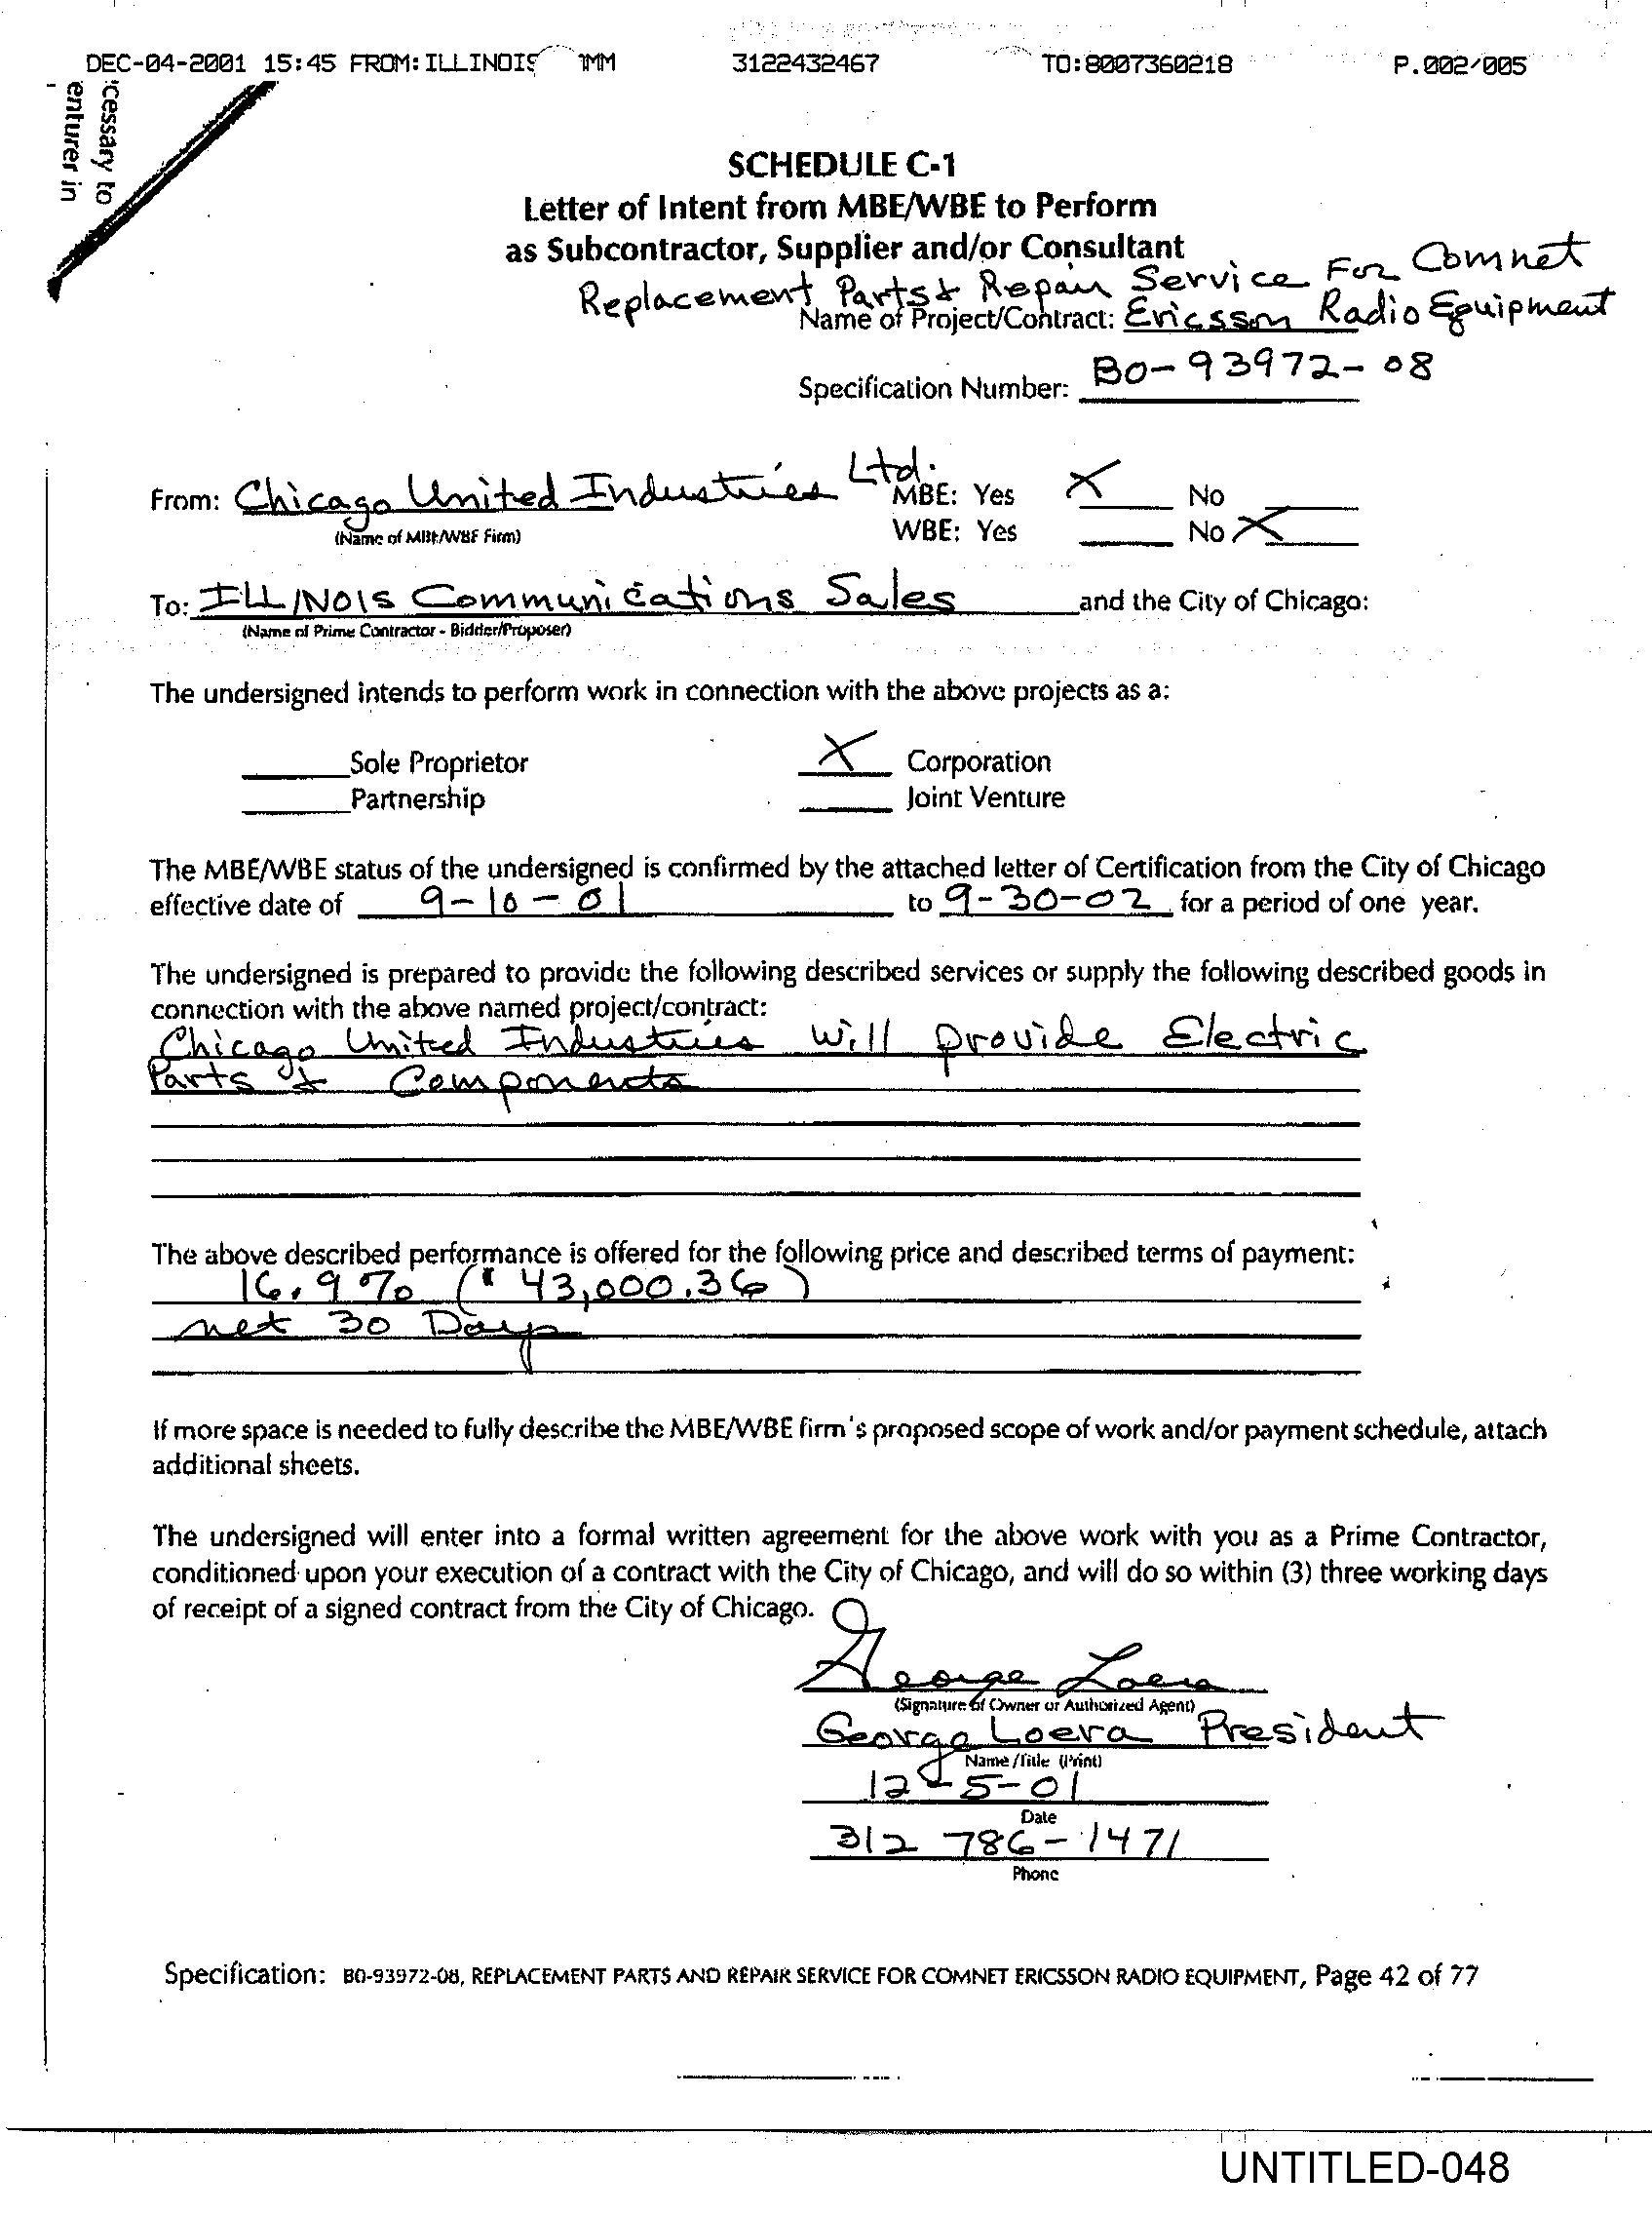 DEC-04-2001 15:45 FROM:ILLINOIS MM 3122432467 TO:8007360218 P.002/005
cessary to
enturer in
SCHEDULE C-1
Letter of Intent from MBE/WBE to Perform
as Subcontractor, Supplier and/or Consultant
Replacement Parts & Repair Service For Comnet
Name of Project/Contract: Ericsson Radio Equipment
Specification Number: BO-93972-08
From: Chicago United Industries Ltd. MBE: Yes X No
(Name of MBE/WBE Firm) WBE: Yes No X
To: ILLINOIS Communications Sales and the City of Chicago:
(Name of Prime Contractor - Bidder/Proposer)
The undersigned intends to perform work in connection with the above projects as a:
Sole Proprietor X Corporation
Partnership Joint Venture
The MBE/WBE status of the undersigned is confirmed by the attached letter of Certification from the City of Chicago
effective date of 9-10-01 to 9-30-02 for a period of one year.
The undersigned is prepared to provide the following described services or supply the following described goods in
connection with the above named project/contract:
Chicago United Industries will provide Electric
Parts & Components
The above described performance is offered for the following price and described terms of payment:
16.9% ($ 43,000.36)
net 30 Days
If more space is needed to fully describe the MBE/WBE firm's proposed scope of work and/or payment schedule, attach
additional sheets.
The undersigned will enter into a formal written agreement for the above work with you as a Prime Contractor,
conditioned upon your execution of a contract with the City of Chicago, and will do so within (3) three working days
of receipt of a signed contract from the City of Chicago.
George Loera
(Signature of Owner or Authorized Agent)
George Loera President
Name /Title (Print)
12-5-01
Date
312 786-1471
Phone
Specification: B0-93972-08, REPLACEMENT PARTS AND REPAIR SERVICE FOR COMNET ERICSSON RADIO EQUIPMENT, Page 42 of 77
UNTITLED-048